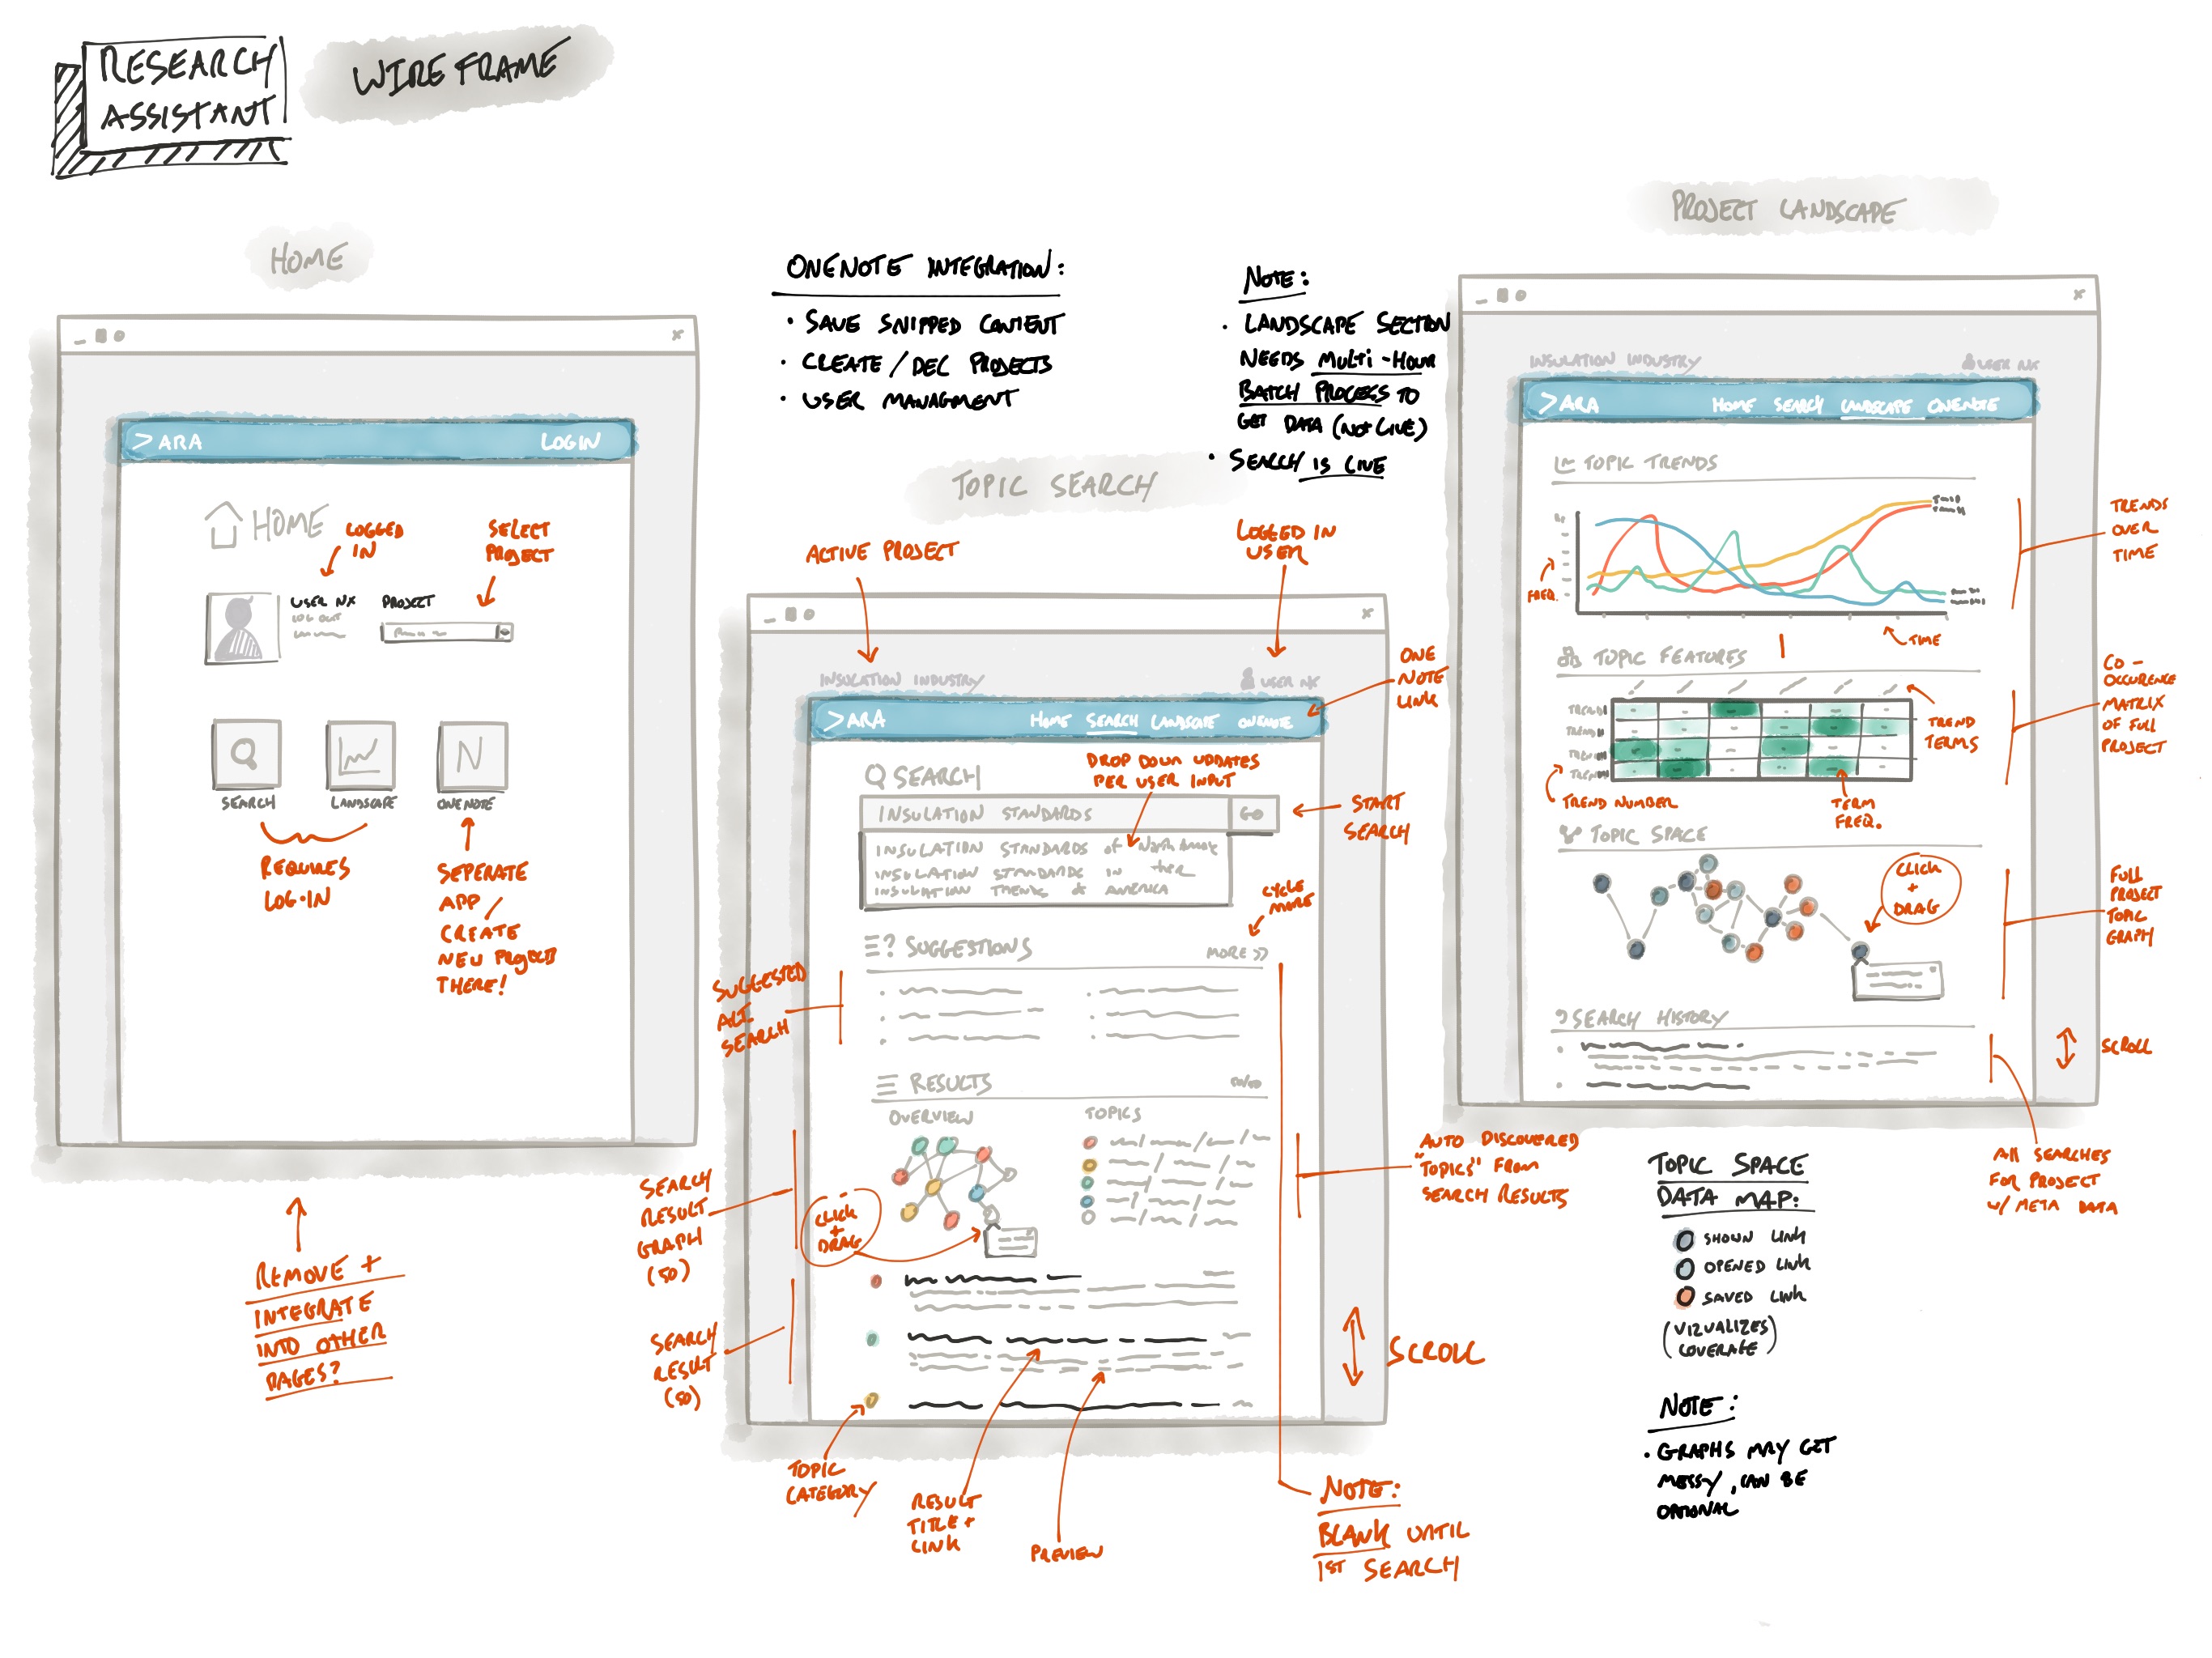 RESEARCH
ASSISTANT
WIREFRAME
HOME
> ARA
LOGIN
HOME
LOGGED
IN
SELECT
PROJECT
USER NX
LOG OUT
PROJECT
SEARCH
LANDSCAPE
ONENOTE
REQUIRES
LOG-IN
SEPERATE
APP /
CREATE
NEW PROJECTS
THERE!
REMOVE +
INTEGRATE
INTO OTHER
PAGES?
ONENOTE INTEGRATION:
• SAVE SNIPPED CONTENT
• CREATE / DEC PROJECTS
• USER MANAGMENT
NOTE:
• LANDSCAPE SECTION
NEEDS MULTI-HOUR
BATCH PROCESS TO
GET DATA (NOT LIVE)
• SEARCH IS LIVE
TOPIC SEARCH
ACTIVE PROJECT
LOGGED IN
USER
INSULATION INDUSTRY
USER NX
ONE
NOTE
LINK
> ARA
HOME SEARCH LANDSCAPE ONENOTE
SEARCH
DROP DOWN UPDATES
PER USER INPUT
INSULATION STANDARDS
GO
START
SEARCH
INSULATION STANDARDS of North
INSULATION STANDARDS IN
INSULATION TRENDS AMERICA
CYCLE
MORE
? SUGGESTIONS
MORE >>
SUGGESTED
ALT.
SEARCH
RESULTS
OVERVIEW
TOPICS
SEARCH
RESULT
GRAPH
(50)
CLICK
+
DRAG
AUTO DISCOVERED
"TOPICS" FROM
SEARCH RESULTS
SEARCH
RESULT
(50)
SCROLL
TOPIC
CATEGORY
RESULT
TITLE +
LINK
PREVIEW
NOTE:
BLANK UNTIL
1ST SEARCH
PROJECT LANDSCAPE
INSULATION INDUSTRY
USER NX
> ARA
HOME SEARCH LANDSCAPE ONENOTE
TOPIC TRENDS
FREQ.
TIME
TRENDS
OVER
TIME
TOPIC FEATURES
TREND
TREND
TREND
TREND
TREND
TERMS
TREND NUMBER
TERM
FREQ.
CO-
OCCURENCE
MATRIX
OF FULL
PROJECT
TOPIC SPACE
CLICK
+
DRAG
FULL
PROJECT
TOPIC
GRAPH
SEARCH HISTORY
SCROLL
All SEARCHES
FOR PROJECT
W/ META DATA
TOPIC SPACE
DATA MAP:
SHOWN LINK
OPENED LINK
SAVED LINK
(VIZUALIZES
COVERAGE)
NOTE:
• GRAPHS MAY GET
MESSY, CAN BE
OPTIONAL